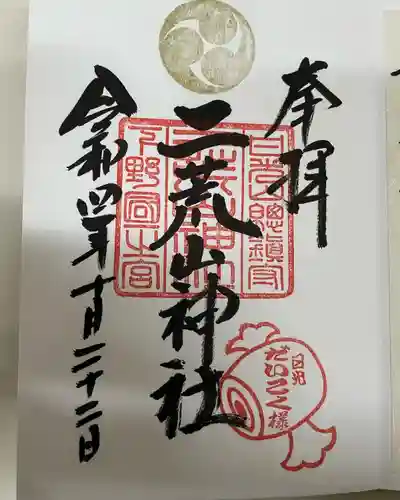 奉拝
日光山總鎮守
二荒山神社
下野國一宮
日光
だいこく様
令和四年十月二十二日